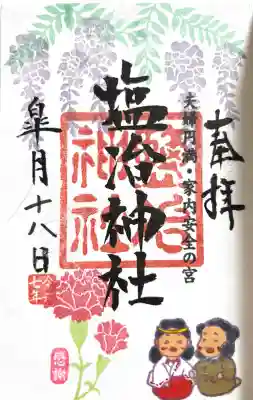 奉拝
夫婦円満・家内安全の宮
塩冶神社
塩冶神社
皐月十八日
令和七年
感謝